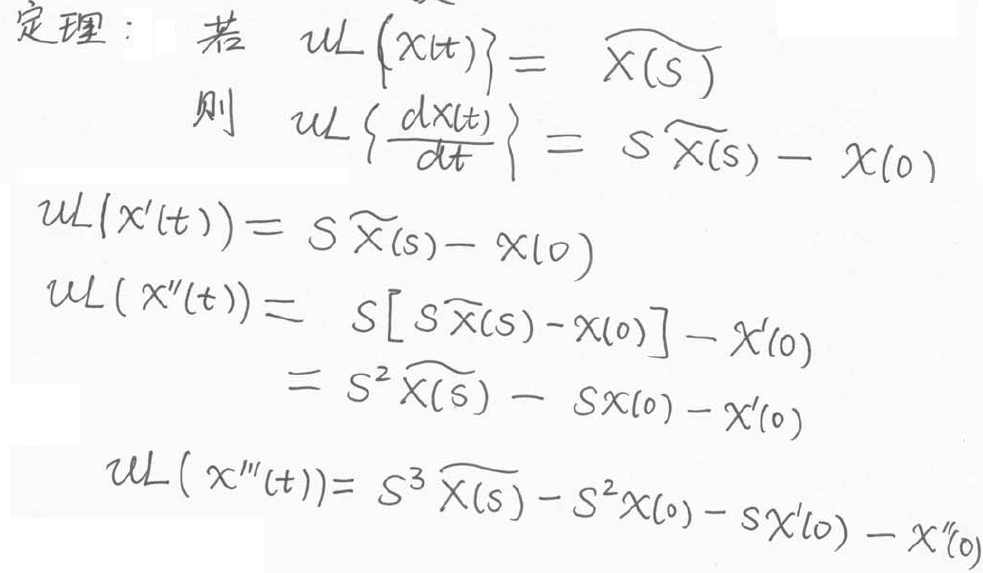 定理： 若 uL{x(t)} = \widetilde{X(s)}
则 uL{\frac{dx(t)}{dt}} = s\widetilde{X(s)} - x(0)
uL(x'(t)) = s\widetilde{X}(s) - x(0)
uL(x''(t)) = s[s\widetilde{X}(s) - x(0)] - x'(0)
= s^2\widetilde{X(s)} - sx(0) - x'(0)
uL(x'''(t)) = s^3\widetilde{X(s)} - s^2x(0) - sx'(0) - x''(0)